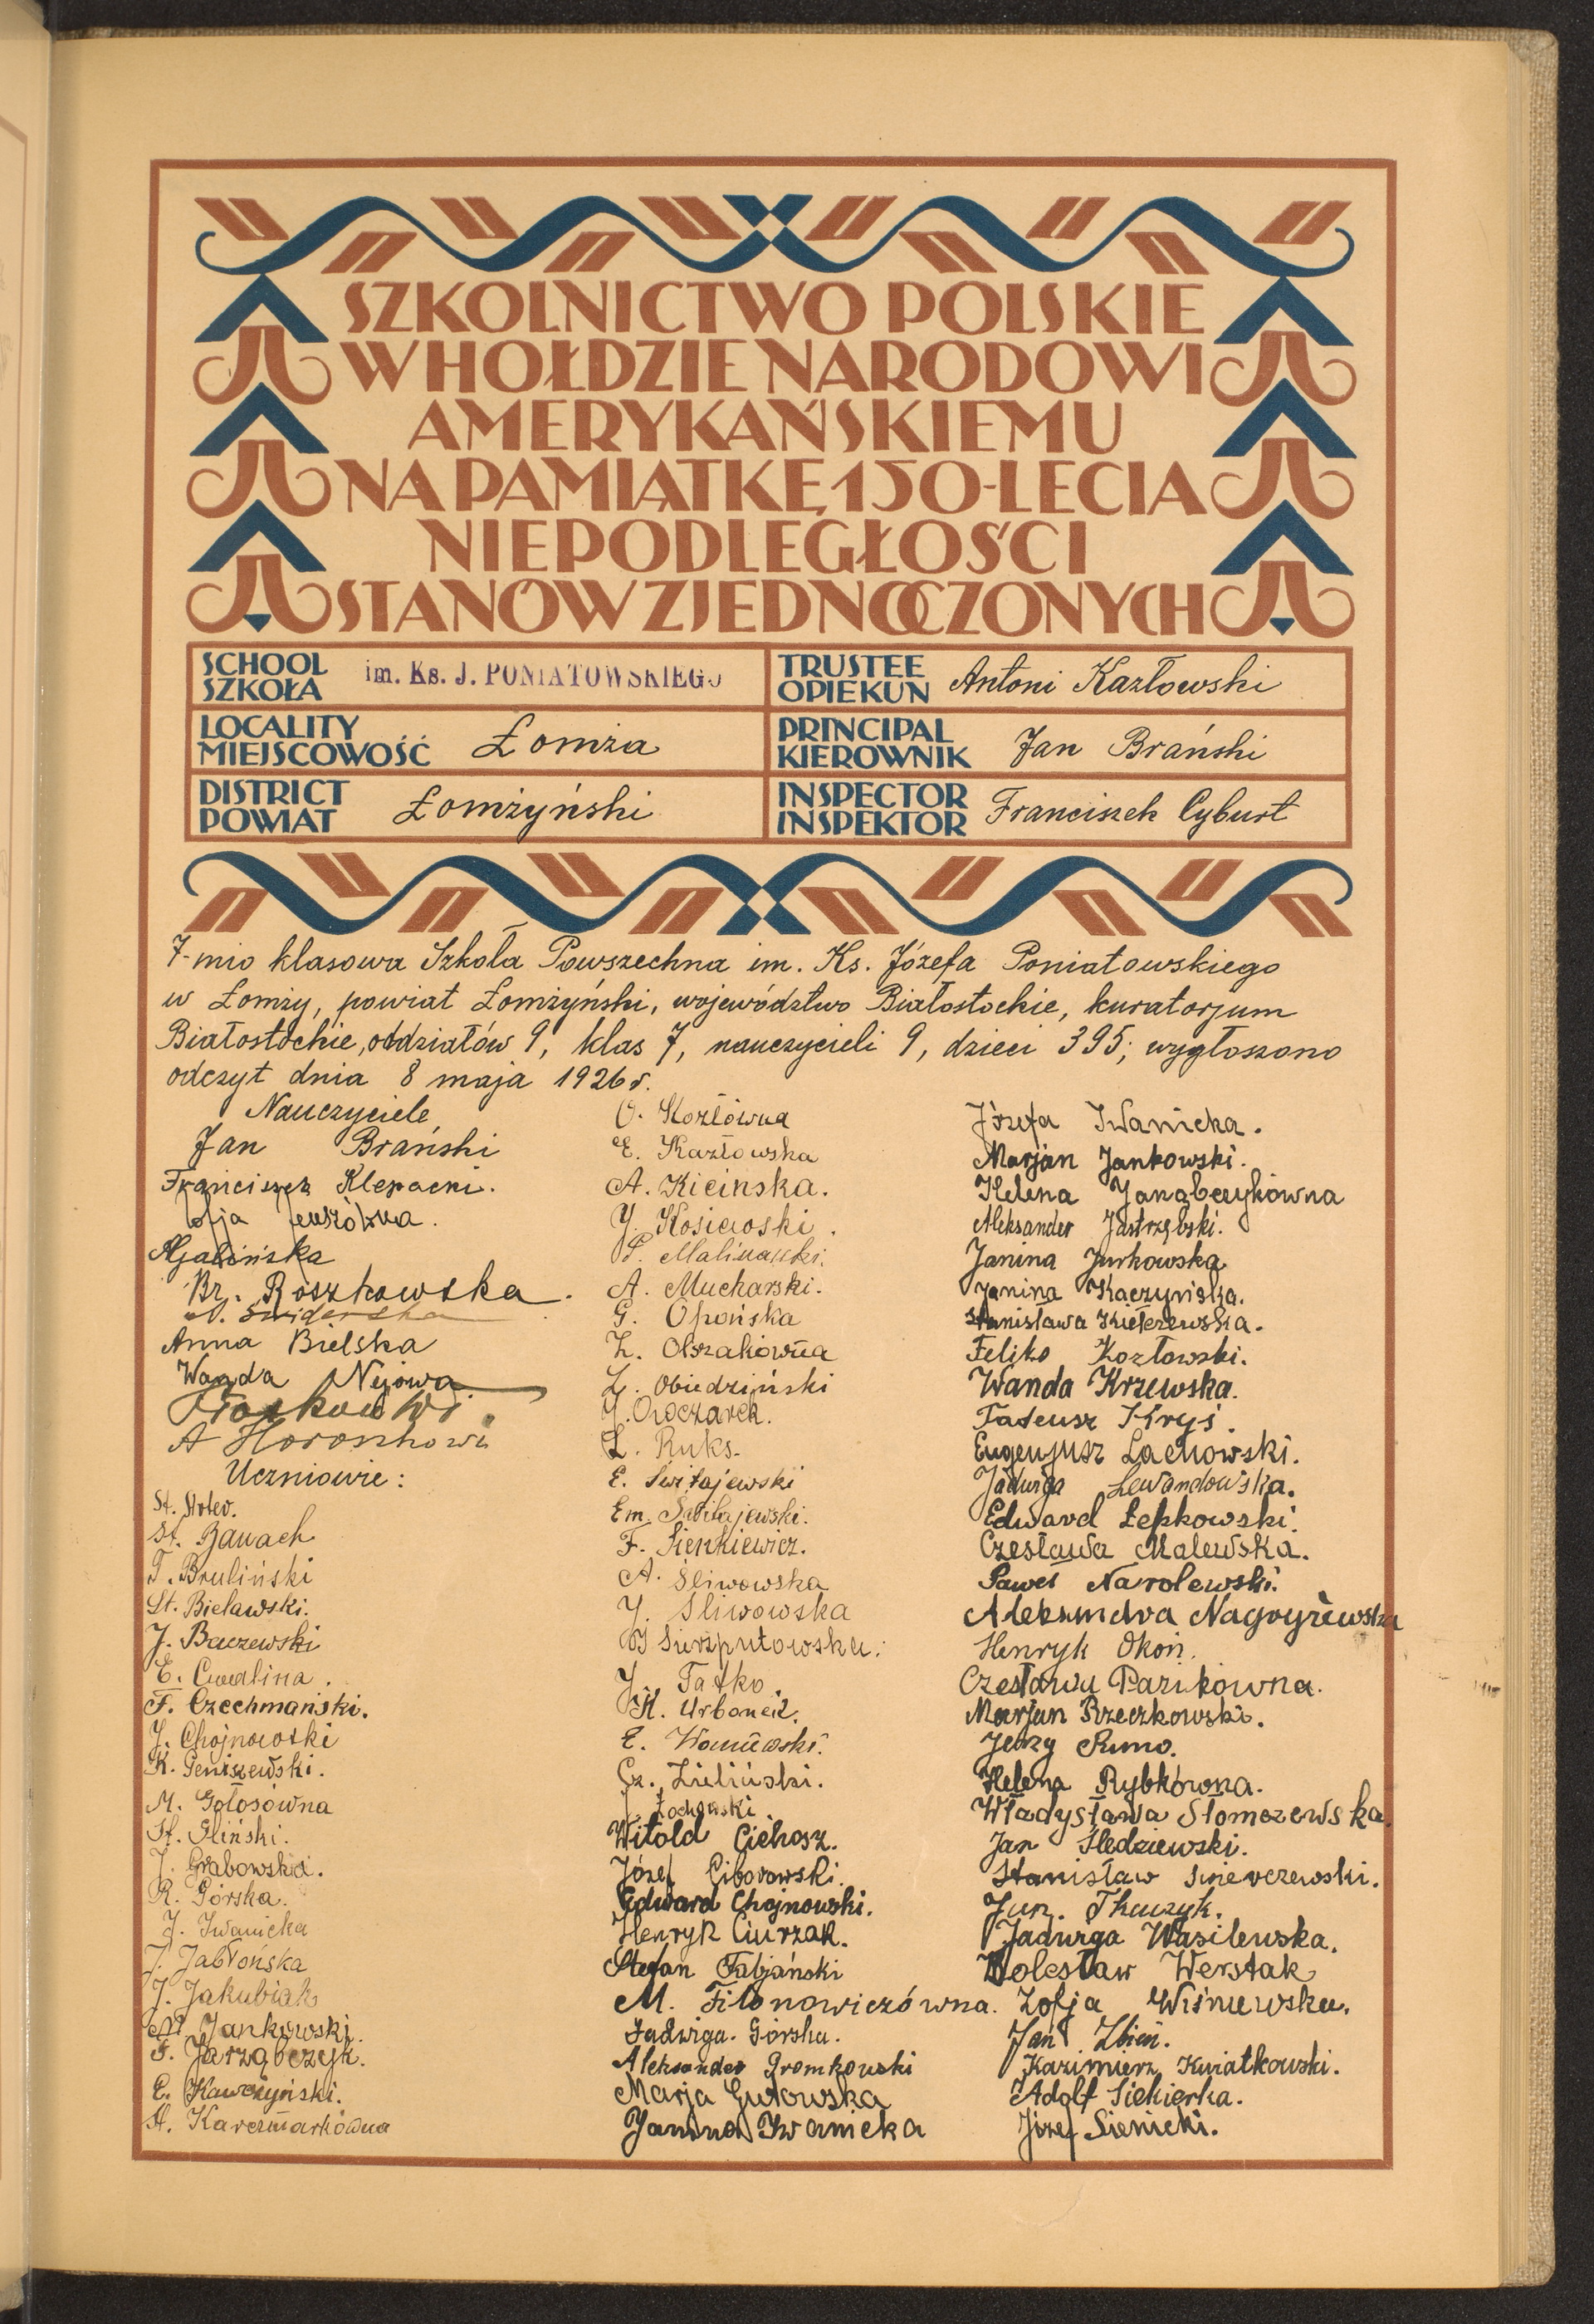 SZKOLNICTWO POLSKIE
W HOŁDZIE NARODOWI
AMERYKAŃSKIEMU
NA PAMIĄTKĘ 150-LECIA
NIEPODLEGŁOŚCI
STANÓW ZJEDNOCZONYCH
SCHOOL
SZKOŁA
im. Ks. J. PONIATOWSKIEGO
TRUSTEE
OPIEKUN
Antoni Kazłowski
LOCALITY
MIEJSCOWOŚĆ
Łomża
PRINCIPAL
KIEROWNIK
Jan Brański
DISTRICT
POWIAT
Łomżyński
INSPECTOR
INSPEKTOR
Franciszek Cyburt
7-mio klasowa Szkoła Powszechna im. Ks. Józefa Poniatowskiego
w Łomży, powiat Łomżyński, województwo Białostockie, kuratorjum
Białostockie, oddziałów 9, klas 7, nauczycieli 9, dzieci 395; wygłoszono
odczyt dnia 8 maja 1926 r.
Nauczyciele
Jan Brański
Franciszek Klepacki.
Zofja
Br. Roszkowska.
A. Świderska
Anna Bielska
Wanda Nejowa
A
Uczniowie:
St.
St. Banach
T. Bruliński
St. Bielawski.
J. Baczewski
E. Cwalina.
F. Czechmański.
J. Chojnowski
K. Geniszewski.
M. Gołosówna
St. Gliński.
J. Grabowska.
R. Górska.
J. Iwanicka
J. Jabłońska
J. Jakubiak
M. Jankowski.
F. Jarząbczyk.
E. Kawczyński.
H. Karczmarkówna
O. Kozłówna
E. Kazłowska
A. Kicińska.
J. Kosiewski.
Malinowski.
A. Mucharski.
G. Opońska
Z. Olszakówna
Z. Obiedziński
J. Owczarek.
L. Ruks.
E. Świtajewski
Em. Świtajewski.
F. Sienkiewicz.
A. Śliwowska
J. Śliwowska
Sierzputowska.
J. Tatko.
K. Urbanek.
E.
Cz. Zieliński.
J. Żochowski.
Witold Cichosz.
Józef Ciborowski.
Edward Chojnowski.
Henryk Ciurzak.
Stefan Fabjański
M. Filonowiczówna.
Jadwiga Górska.
Aleksander Gromkowski
Marja Gutowska
Janina Iwanicka
Józefa Iwanicka.
Marjan Jankowski.
Helena
Aleksander Jastrzębski.
Janina Jurkowska
Janina Kaczyńska.
Stanisława Kiełczewska.
Feliks Kozłowski.
Wanda Krzewska.
Tadeusz Kryś.
Eugenjusz Lachowski.
Jadwiga Lewandowska.
Edward Łepkowski.
Czesława Malewska.
Paweł Narolewski.
Aleksandra Nagorzewska
Henryk Okoń.
Czesława
Marjan Rzeczkowski.
Jerzy
Helena Rybkówna.
Władysława Słomczewska.
Jan Śledziewski.
Stanisław Świerczewski.
Jan. Tkaczyk.
Jadwiga Wasilewska.
Bolesław Werstak
Zofja Wiśniewska.
Jan Zbień.
Kazimierz Kwiatkowski.
Adolf Siekierka.
Józef Sienicki.